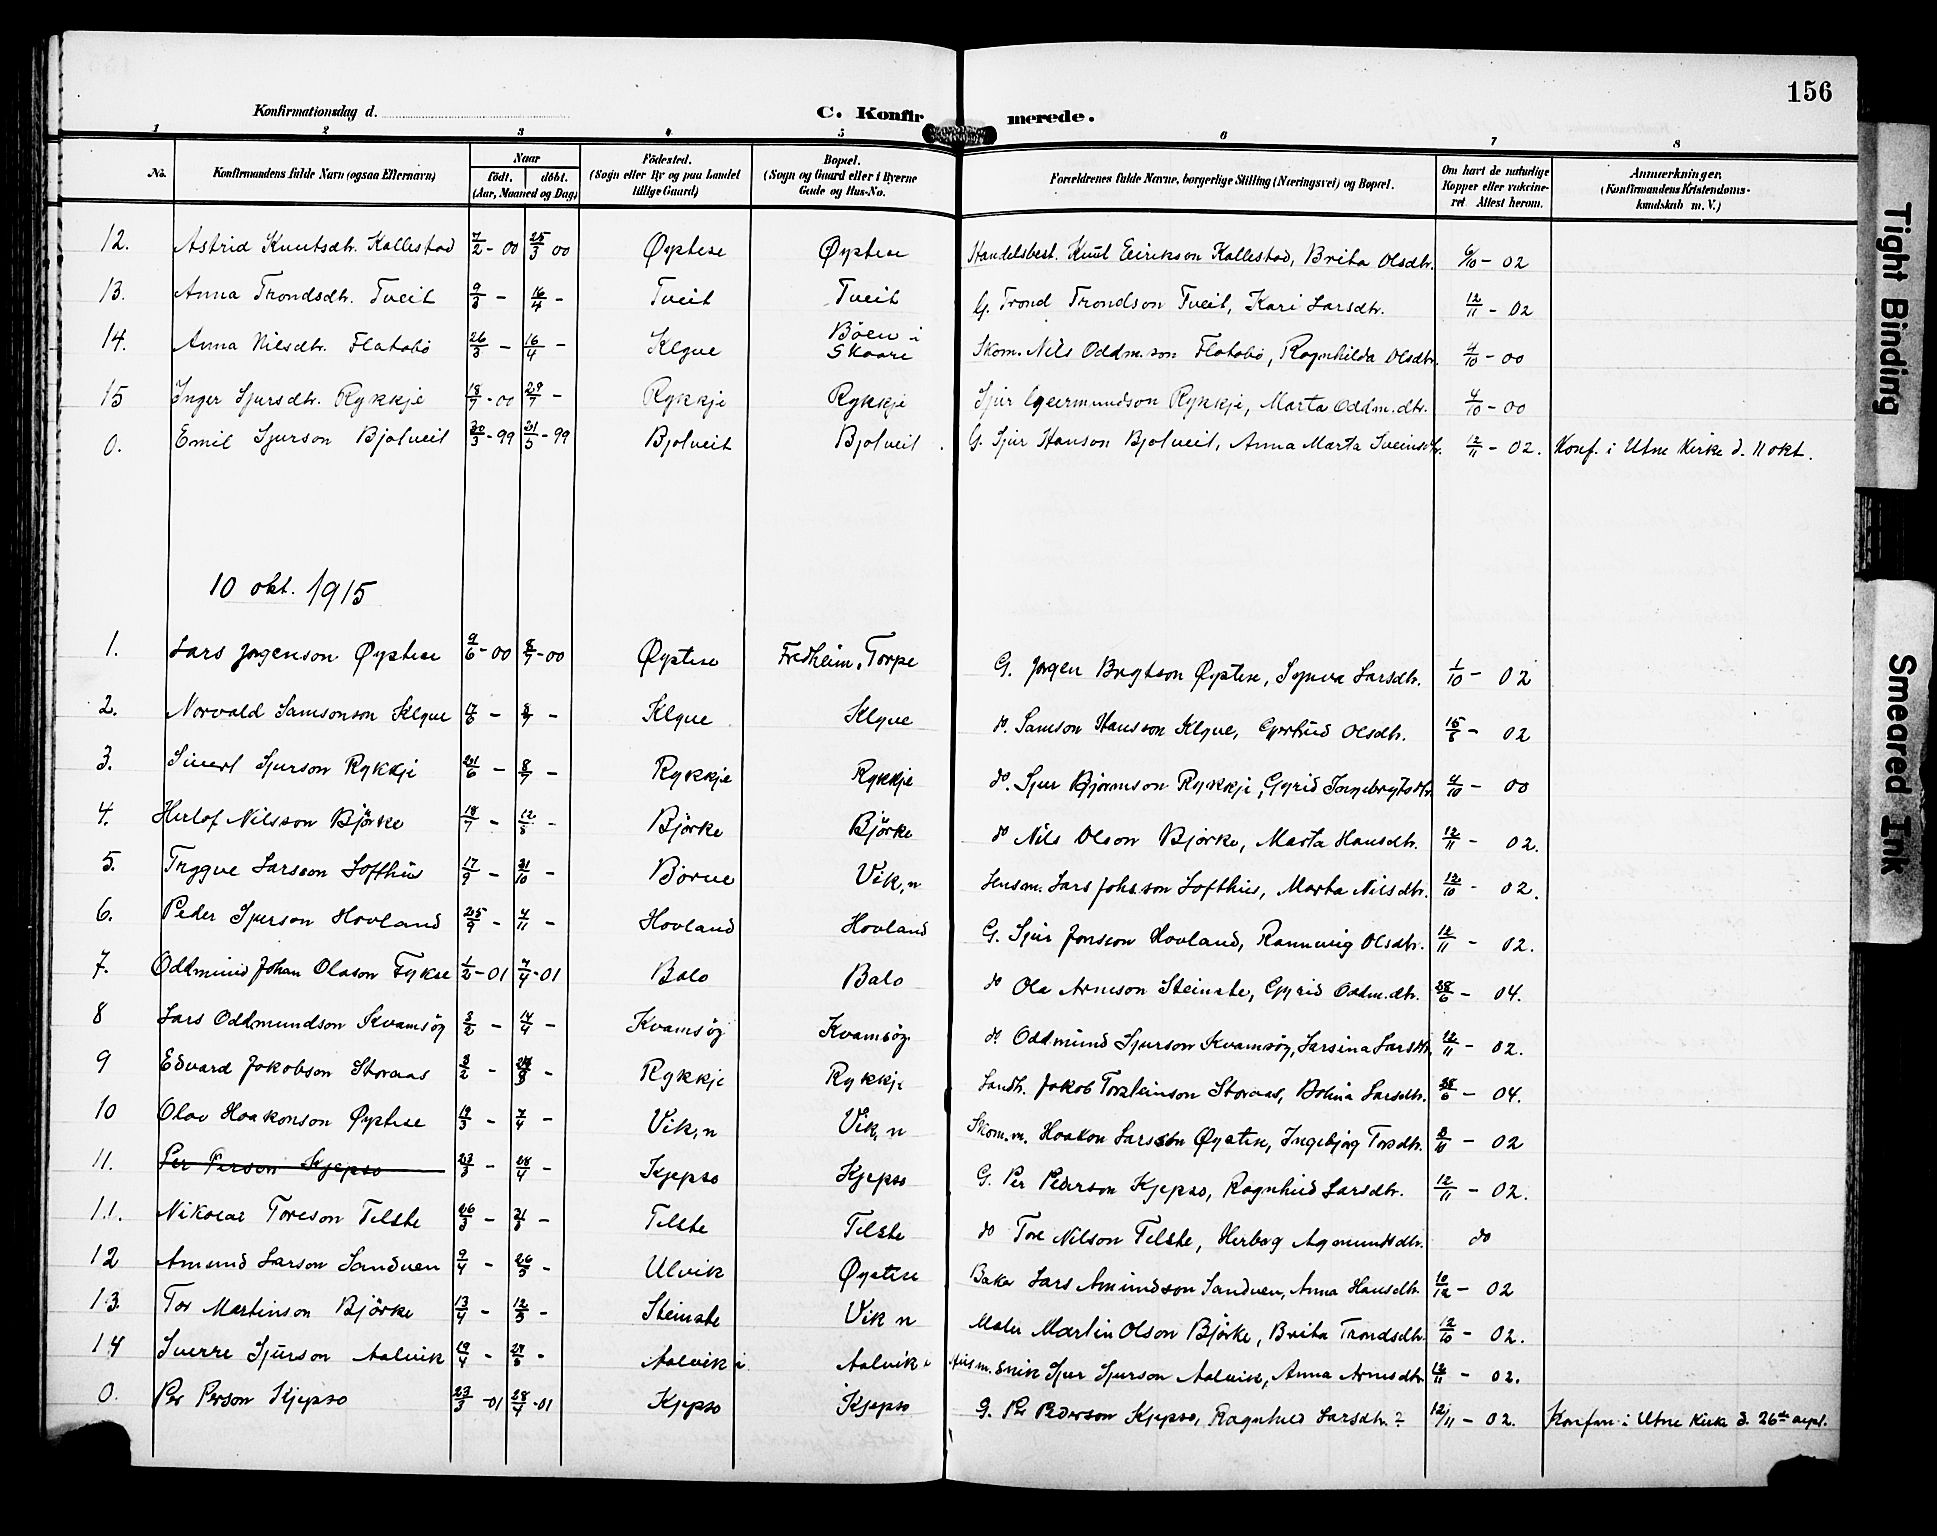 156
Konfirmationsdag d.
C. Konfirmerede.
1 2 3 4 5 6 7 8
No. Konfirmandens fulde Navn (ogsaa Efternavn) Naar født. døbt. (Aar, Maaned og Dag) Fødested. (Sogn eller By og paa Landet tillige Gaard) Bopæl. (Sogn og Gaard eller i Byerne Gade og Hus-No. Forældrenes fulde Navne, borgerlige Stilling (Næringsvei) og Bopæl. Om havt de naturlige Kopper eller vakcineret Attest herom. Anmærkninger. (Konfirmandens Kristendomskundskab m. V.)
12. Astrid Knutsdtr. Kallestad 7/2 - 00 25/3 00 Øystese Øystese Handelsbest. Knut Eirikson Kallestad, Brita Olsdtr. 6/10 - 02
13. Anna Trondsdtr. Tveit 9/3 - 16/4 - Tveit Tveit G. Trond Trondson Tveit, Kari Larsdtr. 12/11 - 02
14. Anna Nilsdtr. Flatabø 26/3 - 16/4 - Klyve Bøen i Skaare Skom. Nils Oddm.son Flatabø, Ragnhilda Olsdtr. 4/10 - 00
15 Inger Sjursdtr. Rykkje 18/7 - 00 29/7 - Rykkje Rykkje Sjur Geermundson Rykkje, Marta Oddm.dtr. 4/10 - 00
0. Emil Sjurson Bjotveit 30/3 - 99 21/5 - 99 Bjotveit Bjotveit. G. Sjur Hanson Bjotveit, Anna Marta Sveinsdtr. 12/11 - 02. Konf. i Utne Kirke d. 11 okt.
10 okt. 1915
1. Lars Jørgenson Øystese 9/6 - 00 8/7 - 00 Øystese Fredheim, Torpe G. Jørgen Brytson Øystese, Synva Larsdtr. 1/10 - 02
2. Norvald Samsonson Klyve 17/6 - 8/7 - Klyve Klyve do. Samson Hansson Klyve, Gjertrud Olsdtr. 02
3. Sivert Sjurson Rykkje 21/6 - 8/7 - Rykkje Rykkje do. Sjur Bjørnson Rykkje, Gyrid Ingebrigtsdtr. 4/10 - 00
4. Herlof Nilsson Bjørke 18/7 - Bjørke Bjørke do Nils Olson Bjørke, Marta Hansdtr. 12/11 - 02.
5. Trygve Larsson Lofthus 17/9 - 21/10 - Børve Vik, n Lensm. Lars Johsson Lofthus, Marta Nilsdtr. 12/10 - 02.
6. Peder Sjurson Hovland 25/9 - 4/11 - Hovland Hovland G. Sjur Jonsson Hovland, Rannveig Olsdtr. 12/11 - 02.
7. Oddmund Johan Olason Fykse 1/2 - 01 7/4 - 01 Balo Balo do Ola Arneson Steinstø, Gyrid Oddm.dtr. 28/6 - 04.
8 Lars Oddmundson Kvamsøy 3/2 - 14/4 - Kvamsøy Kvamsøy. do. Oddmund Sjurson Kvamsøy, Larsina Larsdtr. 12/11 - 02.
9 Edvard Jakobson Storaas 3/2 - Rykkje Rykkje Landh. Jakob Torsteinson Storaas, Larsdtr. 28/6 - 04.
10 Olav Haakonson Øystese 19/3 - 7/4 - Vik, n Vik, n Skom.m. Haakon Larsson Øystese, Ingebjørg Torsdtr. 02
11. Per Person Kjepso 23/3 - 28/4 - Kjepso Kjepso G. Per Pederson Kjepso, Ragnhild Larsdtr. 12/11 - 02.
11. Nikolai Toreson Telste 26/3 - Telste Telste do Tore Nilson Telste, Herborg Agmundsdtr. do
12 Amund Larson Sandven 9/4 - 26/5 - Ulvik Øystese Baker Lars Amundson Sandven, Anna Hansdtr. 10/12 - 02
13. Tor Martinson Bjørke 13/4 - 12/5 - Steinstø Vik n Maler Martin Olson Bjørke, Brita Trondsdtr. 12/10 - 02.
14 Sverre Sjurson Aalvik 19/4 - Aalvik i Aalvik i Sjur Sjurson Aalvik, Anna Arnesdtr 12/11 - 02.
0. Per Person Kjepso 23/3 - 01 28/4 - 01 Kjepso Kjepso G. Per Pederson Kjepso, Ragnhild Larsdtr. 12/11 - 02. Konfm. i Utne Kirke d. 26de sept.
Tight Binding
Smeared Ink